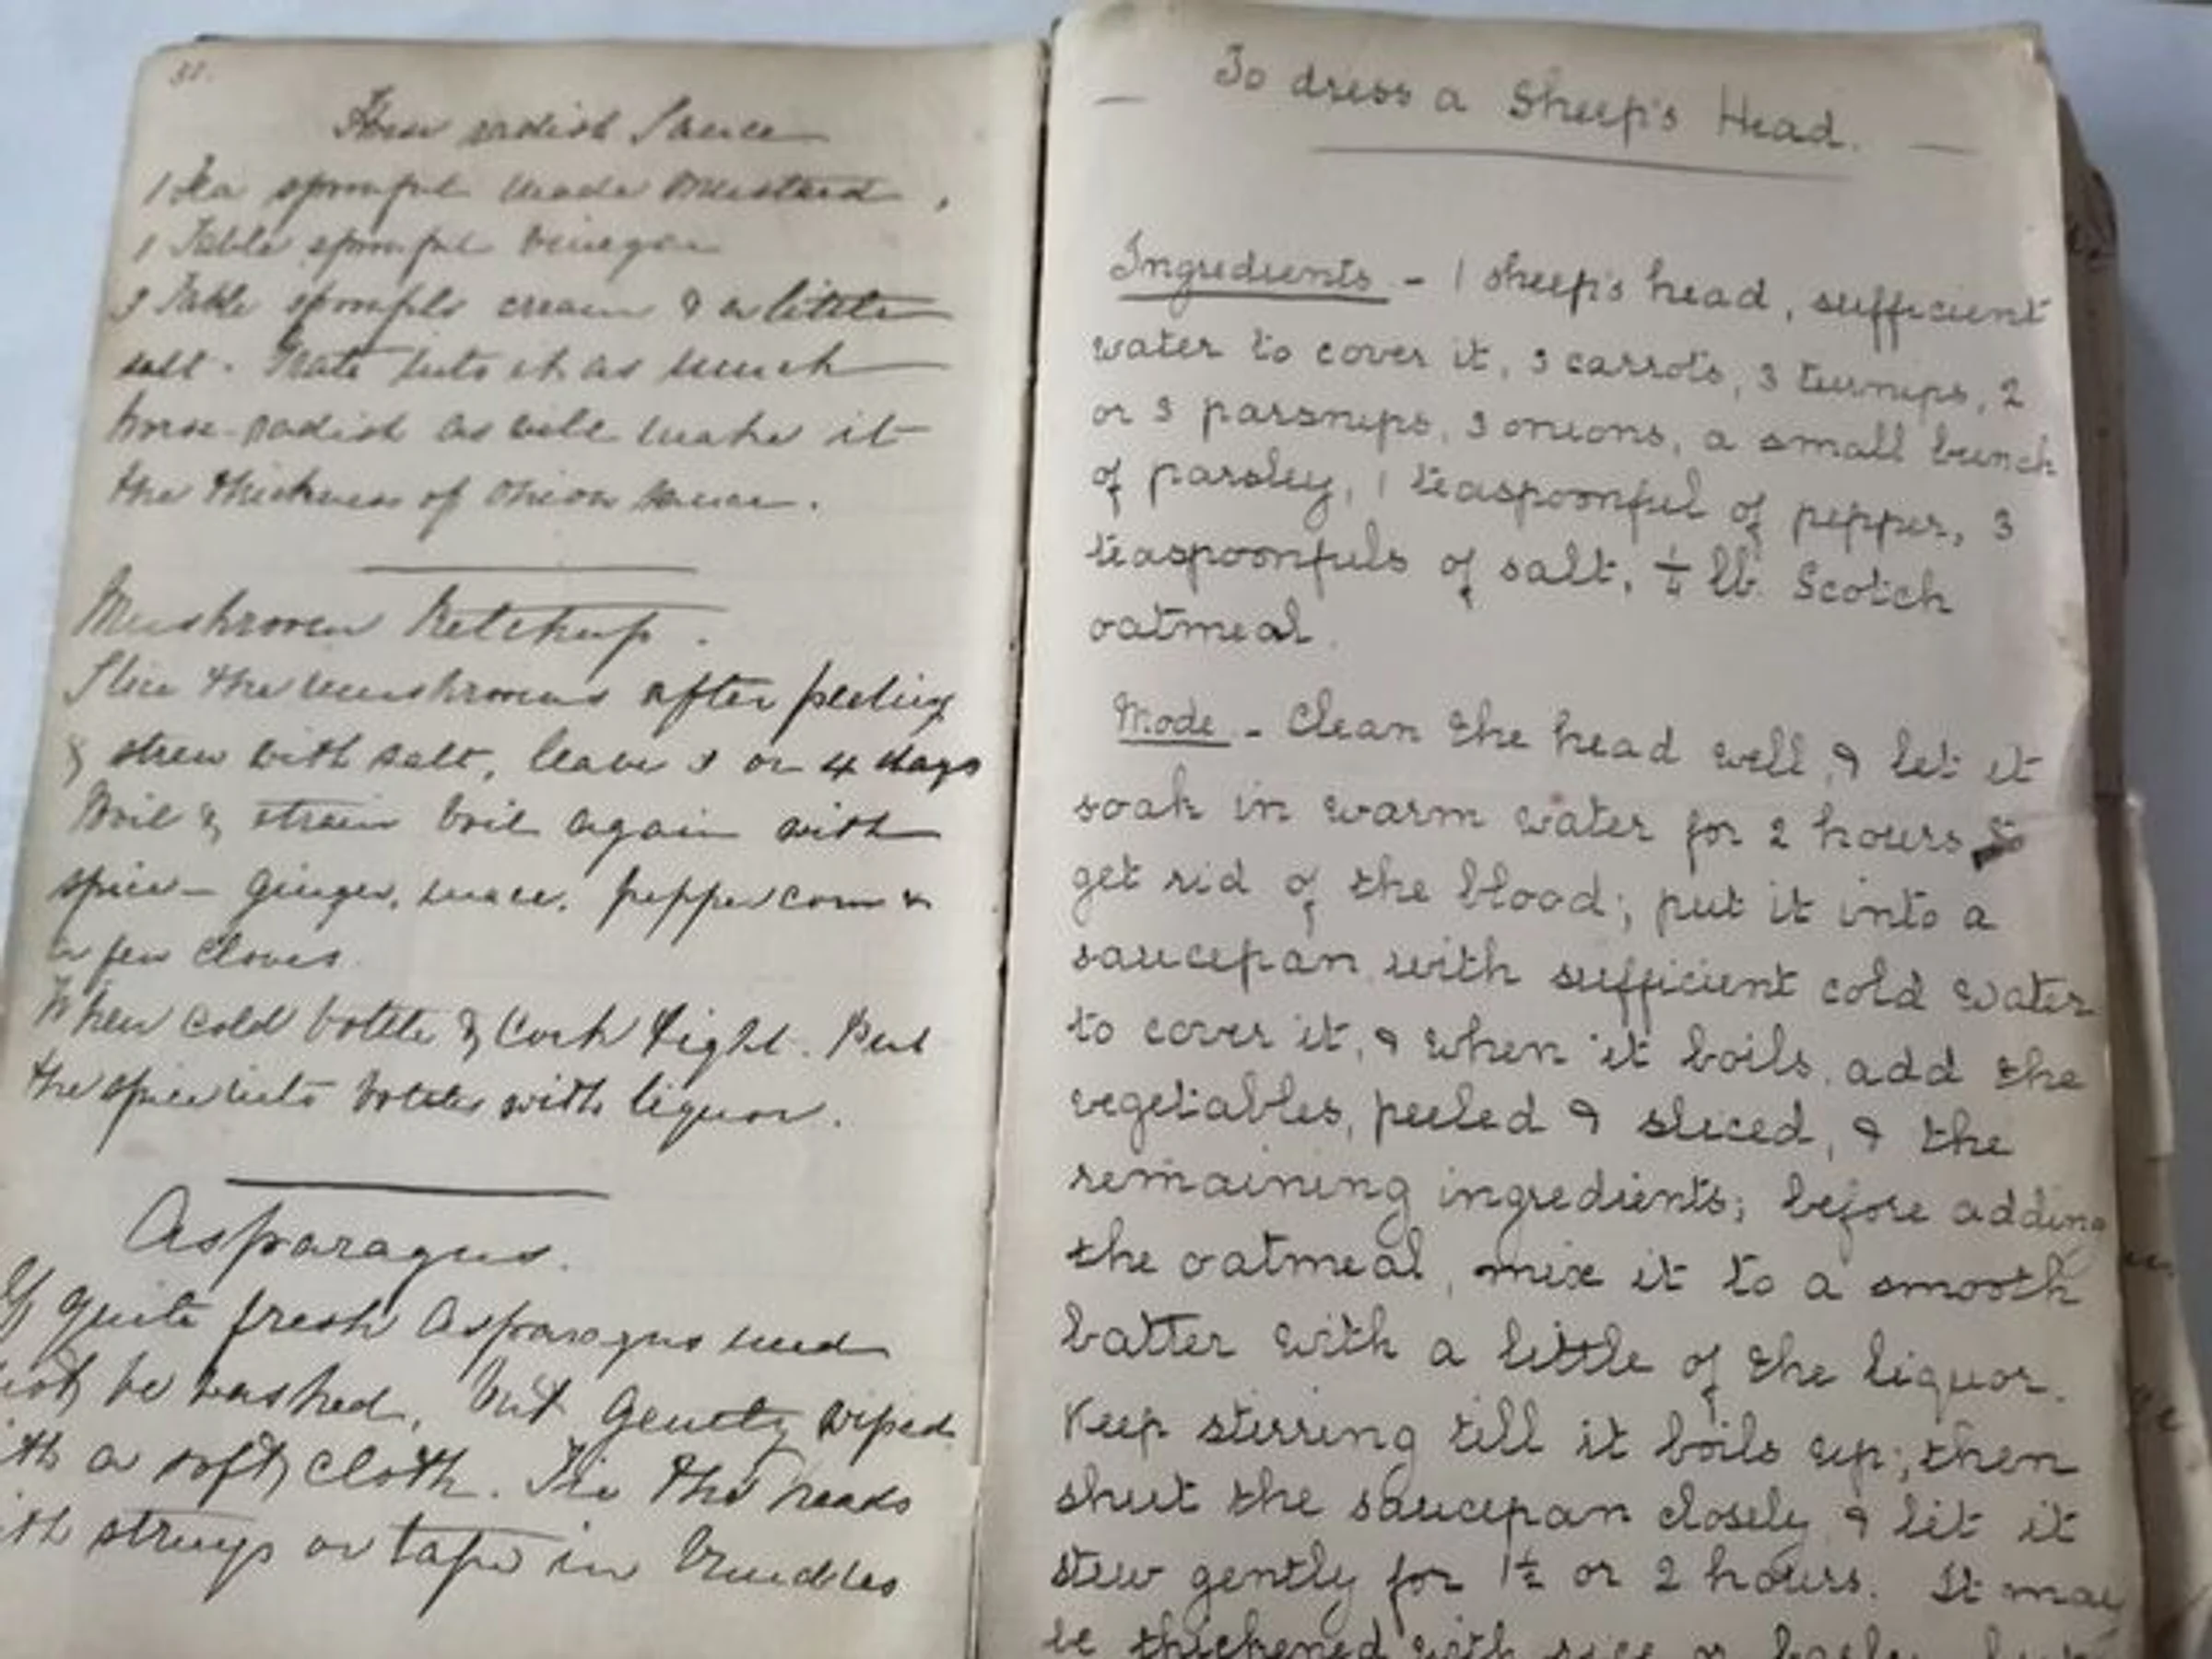 Horse radish Sauce
1 Tea spoonful made Mustard,
1 Table spoonful Vinegar
3 Table spoonfuls cream & a little
salt. Grate into it as much
horse-radish as will make it
the thickness of Onion sauce.
Mushroom Ketchup.
Slice the mushrooms after peeling
& strew with salt, leave 3 or 4 days
Boil & strain boil again with
spice – Ginger, mace, peppercorn &
a few Cloves.
When cold bottle & Cork tight. Put
the spice into bottles with liquor.
Asparagus.
If quite fresh Asparagus need
not be washed, but Gently wiped
ith a soft cloth. Tie the heads
ith strings or tape in Bundles
— To dress a Sheep's Head. —
Ingredients - 1 sheep's head, sufficient
water to cover it, 3 carrots, 3 turnips, 2
or 3 parsnips, 3 onions, a small bunch
of parsley, 1 teaspoonful of pepper, 3
teaspoonfuls of salt, ¼ lb Scotch
oatmeal.
Mode - Clean the head well, & let it
soak in warm water for 2 hours to
get rid of the blood; put it into a
saucepan with sufficient cold water
to cover it, & when it boils, add the
vegetables, peeled & sliced, & the
remaining ingredients; before adding
the oatmeal, mix it to a smooth
batter with a little of the liquor.
Keep stirring till it boils up; then
shut the saucepan closely, & let it
stew gently for 1½ or 2 hours. It may
be thickened with rice or barley, but